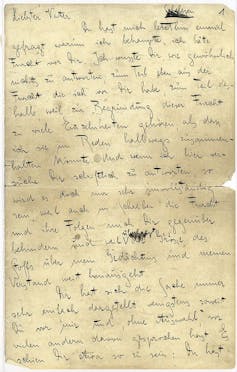 1
Liebster Vater,
Du hast mich letzthin einmal
gefragt, warum ich behaupte, ich hätte
Furcht vor Dir. Ich wusste Dir, wie gewöhnlich,
nichts zu antworten, zum Teil eben aus der
Furcht die ich vor Dir habe, zum Teil des-
halb weil zur Begründung dieser Furcht
zu viele Einzelnheiten gehören als dass
ich sie im Reden halbwegs zusammen-
halten könnte. Und wenn ich hier ver-
suche Dir schriftlich zu antworten, so
wird es doch nur sehr unvollständig
sein, weil auch im Schreiben die Furcht
und ihre Folgen mich Dir gegenüber
behindern und weil Grösse des
Stoffs über mein Gedächtnis und meinen
Verstand weit hinausgeht.
Dir hat sich die Sache immer
sehr einfach dargestellt, wenigstens soweit
Du vor mir und, ohne Auswahl, vor
vielen andern davon gesprochen hast. Es
schien Dir etwa so zu sein: Du hast